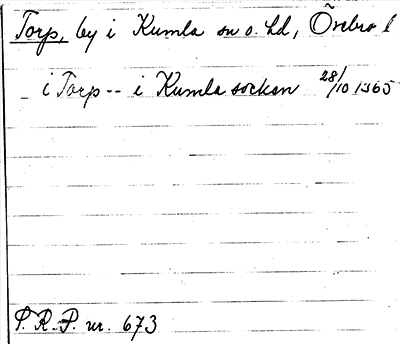 Torp, by i Kumla sn o. hd, Örebro l
i Torp -- i Kumla socken 28/10 1365
P. R. P. nr. 673